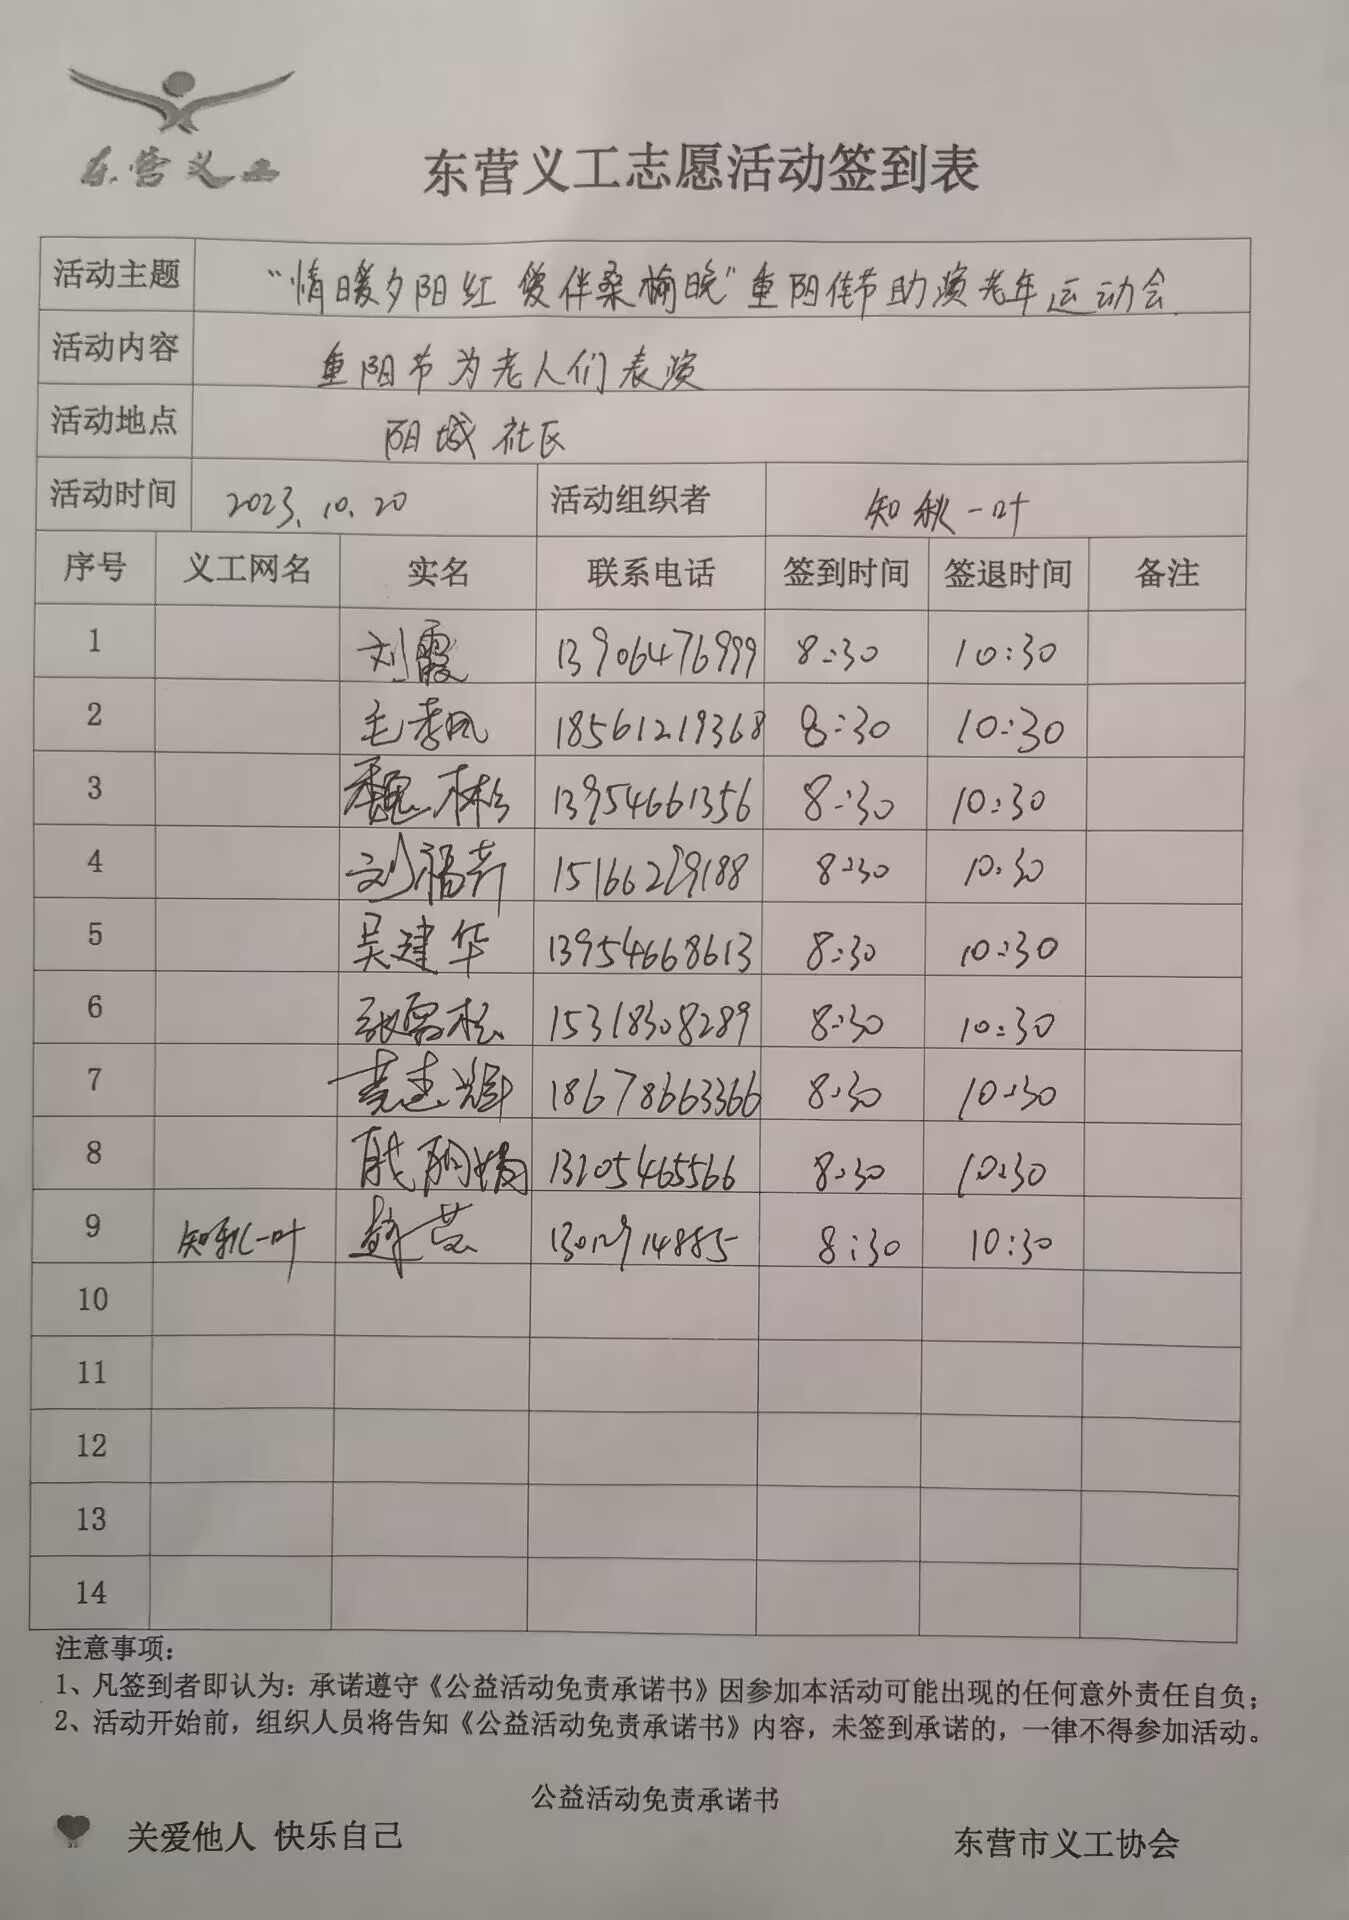 东营义工
东营义工志愿活动签到表
活动主题 “情暖夕阳红 爱伴桑榆晚”重阳佳节助演老年运动会
活动内容 重阳节为老人们表演
活动地点 阳城社区
活动时间 2023.10.20 活动组织者 知秋一叶
序号 义工网名 实名 联系电话 签到时间 签退时间 备注
1 刘霞 13906476999 8:30 10:30
2 毛秀凤 18561219368 8:30 10:30
3 魏林松 13954661356 8:30 10:30
4 刘福芹 8:30 10:30
5 吴建华 13954668613 8:30 10:30
6 张雪松 15318308289 8:30 10:30
7 18678663366 8:30 10:30
8 13205465566 8:30 10:30
9 知秋一叶 赵 8:30 10:30
10
11
12
13
14
注意事项：
1、凡签到者即认为：承诺遵守《公益活动免责承诺书》因参加本活动可能出现的任何意外责任自负；
2、活动开始前，组织人员将告知《公益活动免责承诺书》内容，未签到承诺的，一律不得参加活动。
公益活动免责承诺书
关爱他人 快乐自己 东营市义工协会